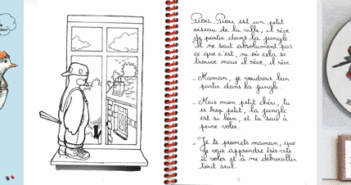 Piou Piou est un petit
oiseau de la ville, il rêve
de partir dans la jungle.
Il ne sait absolument pas
ce que c'est, ni où cela se
trouve mais il rêve, il rêve.
- Maman, je voudrais bien
partir dans la jungle.
- Mais mon petit chéri, tu
es trop petit, la jungle
est si loin, et tu sais à
peine voler.
- Je te promets maman, que
je vais apprendre très vite
à voler et à me débrouiller
tout seul.